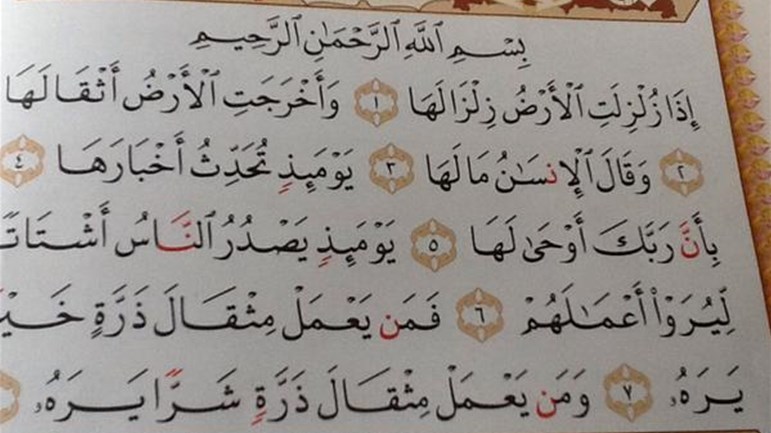 بِسْمِ ٱللَّهِ ٱلرَّحْمَٰنِ ٱلرَّحِيمِ
إِذَا زُلْزِلَتِ ٱلْأَرْضُ زِلْزَالَهَا ١ وَأَخْرَجَتِ ٱلْأَرْضُ أَثْقَالَهَا
٢ وَقَالَ ٱلْإِنسَٰنُ مَا لَهَا ٣ يَوْمَئِذٍ تُحَدِّثُ أَخْبَارَهَا ٤
بِأَنَّ رَبَّكَ أَوْحَىٰ لَهَا ٥ يَوْمَئِذٍ يَصْدُرُ ٱلنَّاسُ أَشْتَاتًا
لِّيُرَوْا۟ أَعْمَٰلَهُمْ ٦ فَمَن يَعْمَلْ مِثْقَالَ ذَرَّةٍ
يَرَهُۥ ٧ وَمَن يَعْمَلْ مِثْقَالَ ذَرَّةٍ شَرًّا يَرَهُۥ